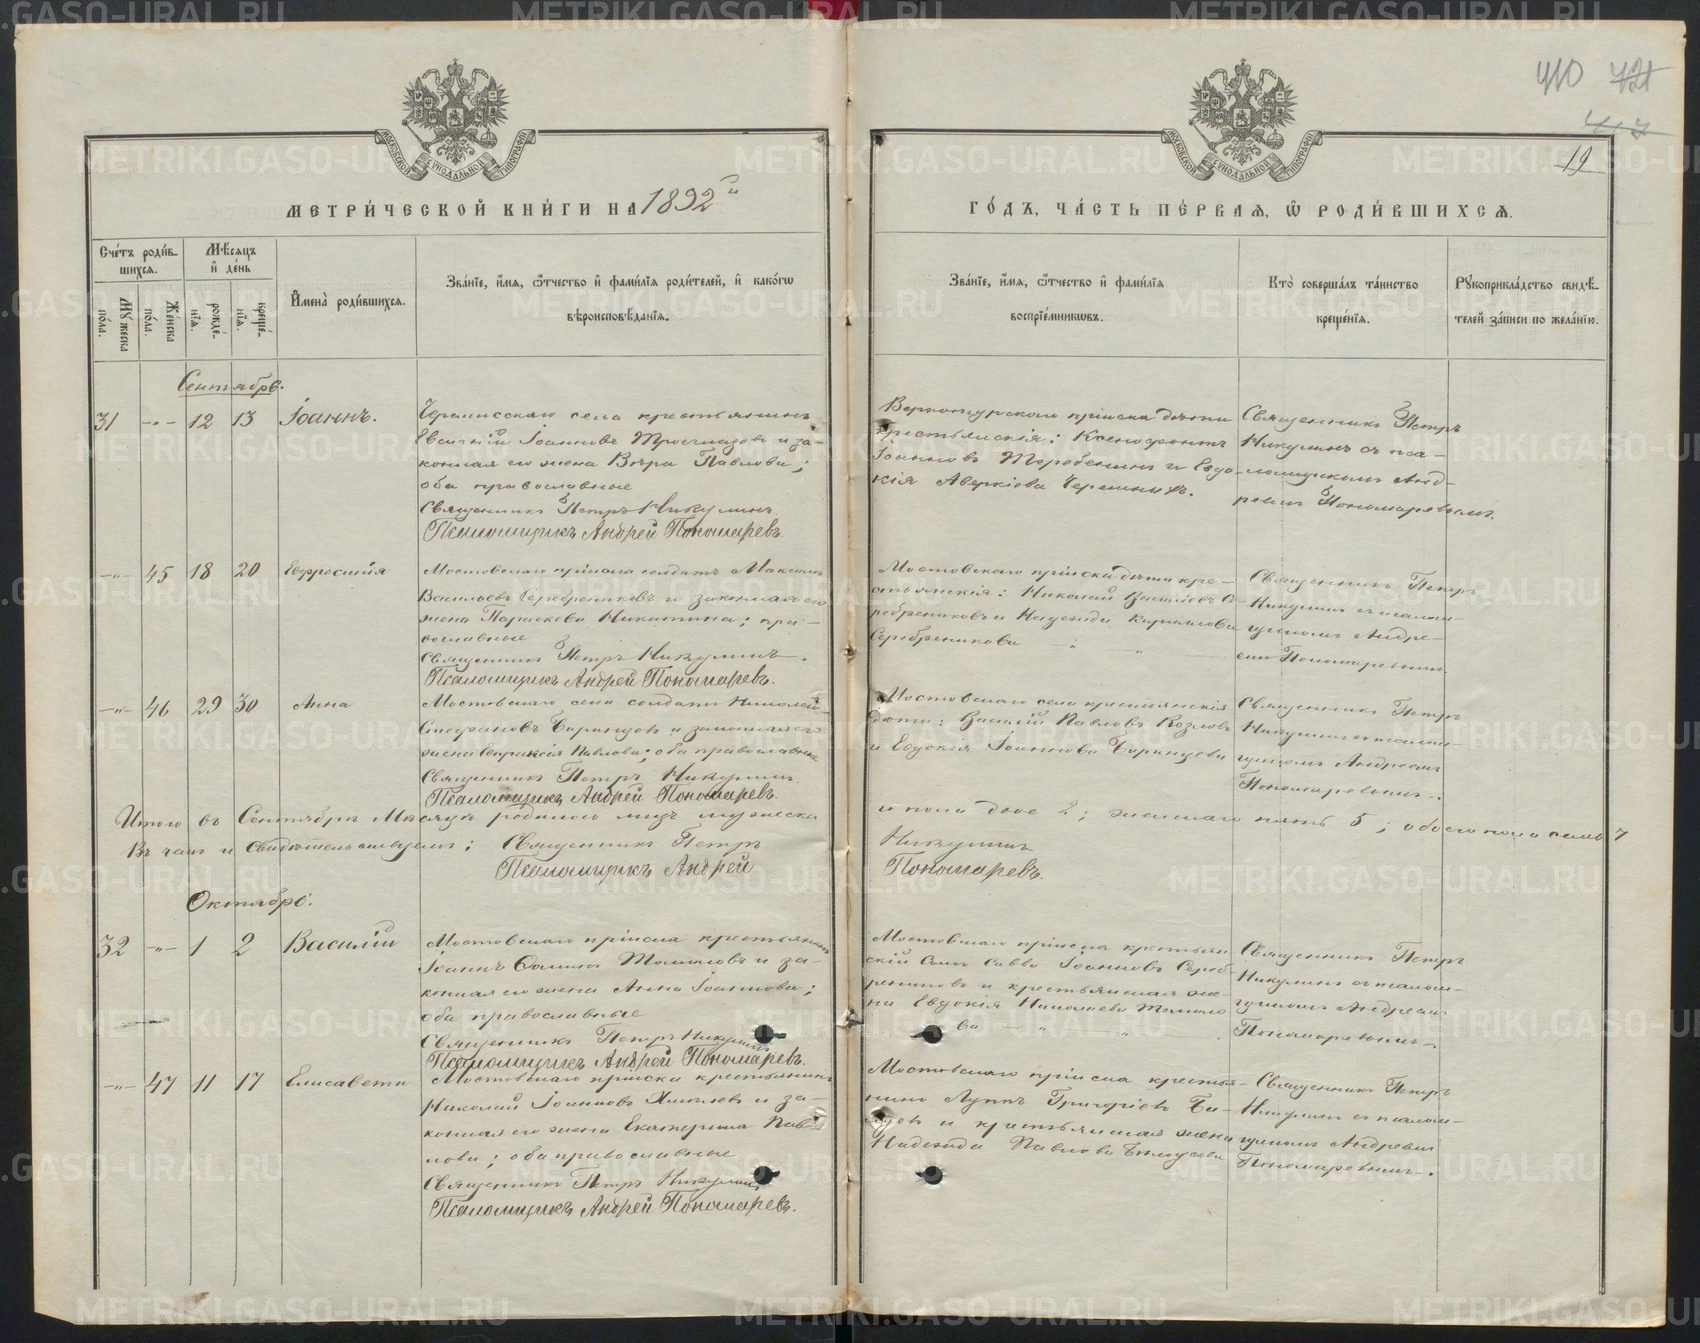 410 721
19
МЕТРИ́ЧЕСКОЙ КНИ́ГИ НА 1892 й
ГО́ДЪ, ЧА́СТЬ ПЕ́РВАЯ, Ѿ РОДИ́ВШИХСЯ.
Сче́тъ роди́в-
шихся.
Му́жеска
по́ла.
Же́нска
по́ла.
Мѣ́сяцъ
и де́нь
рожде́-
нїя.
креще́-
нїя.
И҆мена̀ роди́вшихся.
Зва́нїе, и҆́мя, ѻ҆́тчество и҆ фами́лїя роди́телей, и҆ како́гѡ
вѣроисповѣ́данїя.
Зва́нїе, и҆́мя, ѻ҆́тчество и҆ фами́лїя
воспрїе́мникѡвъ.
Кто̀ соверша́лъ та́инство
креще́нїя.
Рꙋкоприкла́дство свидѣ́-
телей за́писи по жела́нїю.
Сентябрь.
31 -"- 12 13 Іоаннъ.
села крестьянинъ
Іоанновъ и за-
конная его жена Вѣра Павлова;
оба православные
Священникъ Петръ Никулинъ
Псаломщикъ Андрей Пономаревъ.
пріиска дѣти
крестьянскія: Ксенофонтъ
Іоанновъ и Евдо-
кія Аверкіева
Священникъ Петръ
Никулинъ съ пса-
ломщикомъ Анд-
реемъ Пономаревымъ.
-"- 45 18 20 Евфросинія
Мостовскаго пріиска солдатъ Максимъ
Васильевъ Серебренниковъ и законная его
жена Параскева Никитина; пра-
вославные
Священникъ Петръ Никулинъ.
Псаломщикъ Андрей Пономаревъ.
Мостовскаго пріиска дѣти кре-
стьянскія: Николай Васильевъ Се-
ребренниковъ и Надежда Кириллова
Серебренникова -"- "
Священникъ Петръ
Никулинъ съ псалом-
щикомъ Андре-
емъ Пономаревымъ.
-"- 46 29 30 Анна
Мостовскаго села солдатъ Николай
Стефановъ и законная его
жена Павлова; оба православные
Священникъ Петръ Никулинъ.
Псаломщикъ Андрей Пономаревъ.
Мостовскаго села крестьянскія
дѣти: Василій Павловъ Козловъ
и Евдокія Іоаннова
Священникъ Петръ
Никулинъ съ псалом-
щикомъ Андреемъ
Пономаревымъ.
Итого въ Сентябрѣ мѣсяцѣ родилось мужеска
пола двое 2; женскаго пять 5; обоего пола семь 7
Въ чемъ и свидѣтельствуемъ: Священникъ Петръ
Никулинъ
Псаломщикъ Андрей
Пономаревъ.
Октябрь.
32 -"- 1 2 Василій
Мостовскаго пріиска крестьянинъ
Іоаннъ и за-
конная его жена Анна Іоаннова;
оба православные
Священникъ Петръ Никулинъ
Псаломщикъ Андрей Пономаревъ.
Мостовскаго пріиска крестьян-
скій сынъ Савва Іоанновъ Сереб-
ренниковъ и крестьянская же-
на Евдокія Николаева
ва - " "
Священникъ Петръ
Никулинъ съ псалом-
щикомъ Андреемъ
Пономаревымъ.
-"- 47 11 17 Елисавета
Мостовскаго пріиска крестьянинъ
Николай Іоанновъ и за-
конная его жена Екатерина Пав-
лова; оба православные
Священникъ Петръ Никулинъ
Псаломщикъ Андрей Пономаревъ.
Мостовскаго пріиска крестья-
нинъ Григорьевъ
и крестьянская жена
Надежда Павлова
Священникъ Петръ
Никулинъ съ псалом-
щикомъ Андреемъ
Пономаревымъ.
METRIKI.GASO-URAL.RU